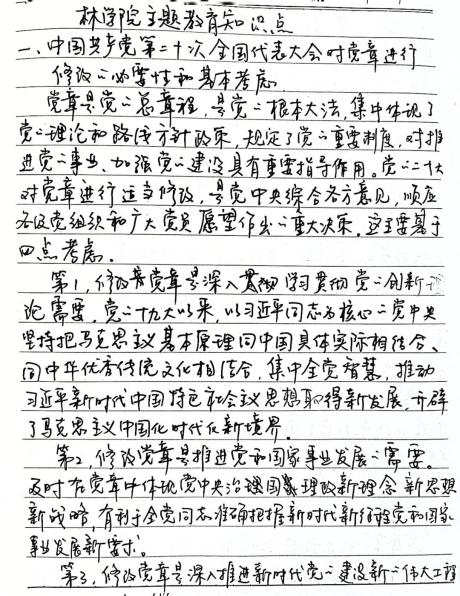 林学院主题教育知识点
一、中国共产党第二十次全国代表大会对党章进行
修改的必要性和基本考虑
党章是党的总章程，是党的根本大法，集中体现了
党的理论和路线方针政策，规定了党的重要制度，对推
进党的事业、加强党的建设具有重要指导作用。党的二十大
对党章进行适当修改，是党中央综合各方意见，顺应
各级党组织和广大党员愿望作出的重大决策。这主要基于
四点考虑。
第1，修改党章是深入学习贯彻党的创新理
论需要，党的十九大以来，以习近平同志为核心的党中央
坚持把马克思主义基本原理同中国具体实际相结合、
同中华优秀传统文化相结合，集中全党智慧，推动
习近平新时代中国特色社会主义思想取得新发展，开辟
了马克思主义中国化时代化新境界。
第2，修改党章是推进党和国家事业发展的需要。
及时在党章中体现党中央治国理政新理念 新思想
新战略，有利于全党同志准确把握新时代新征程党和国家
事业发展新要求。
第3，修改党章是深入推进新时代党的建设新的伟大工程